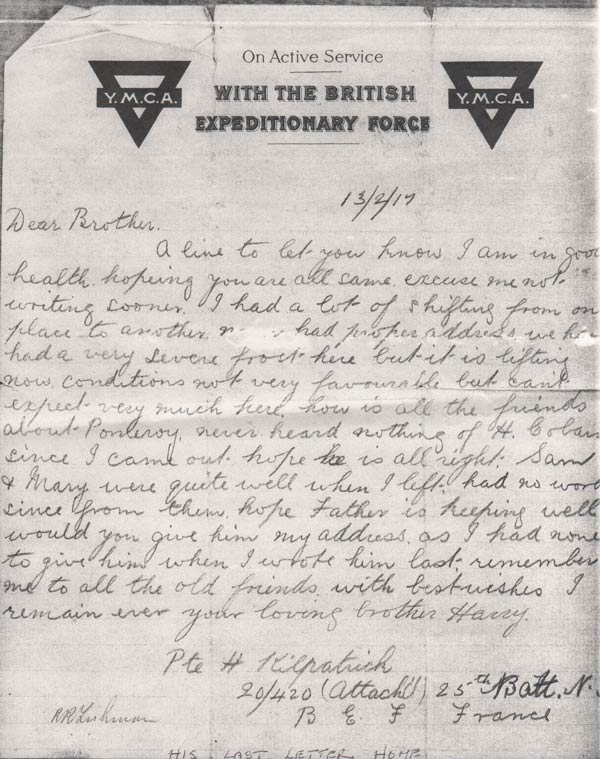 On Active Service
Y.M.C.A. WITH THE BRITISH Y.M.C.A.
EXPEDITIONARY FORCE
13/2/17
Dear Brother.
A line to let you know I am in good
health. hopeing you are all same. excuse me not
writing sooner. I had a lot of shifting from one
place to another. had proper address. we
had a very severe frost here but it is lifting
now. conditions not very favourable but can't
expect very much here. how is all the friends
about Pomeroy. never heard nothing of H. Coban
since I came out hope he is all right. Sam
& Mary were quite well when I left. had no word
since from them. hope Father is keeping well
would you give him my address. as I had none
to give him when I wrote him last. remember
me to all the old friends. with best wishes I
remain ever your loving brother Harry.
Pte H Kilpatrick
20/420 (Attach'd) 25th Batt. N.
B E F France
HIS LAST LETTER HOME